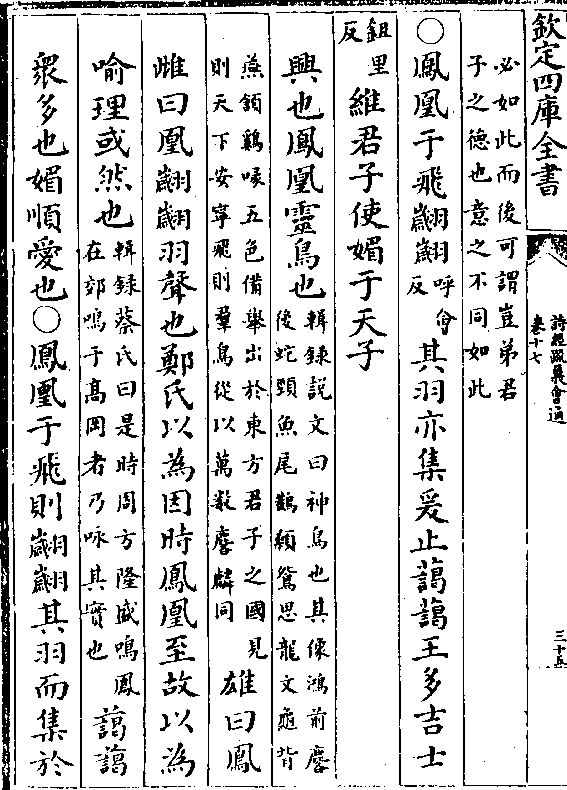 欽定四庫全書
詩經疏義會通
卷十七
三十五
必如此而後可謂豈弟君
子之德也意之不同如此
○鳳凰于飛翽翽呼會反其羽亦集爰止藹藹王多吉士
鉏里反維君子使媚于天子
興也鳳凰靈鳥也輯錄説文曰神鳥也其像鴻前麐後蛇頸魚尾鸛顙鴛思龍文龜背
燕頷鷄喙五色備舉出於東方君子之國見則天下安寧飛則羣鳥從以萬數麐麟同雄曰鳳
雌曰凰翽翽羽聲也鄭氏以為因時鳳凰至故以為
喻理或然也輯錄蔡氏曰是時周方隆盛鳴鳳在郊鳴于高岡者乃咏其實也藹藹
衆多也媚順愛也○鳳凰于飛則翽翽其羽而集於